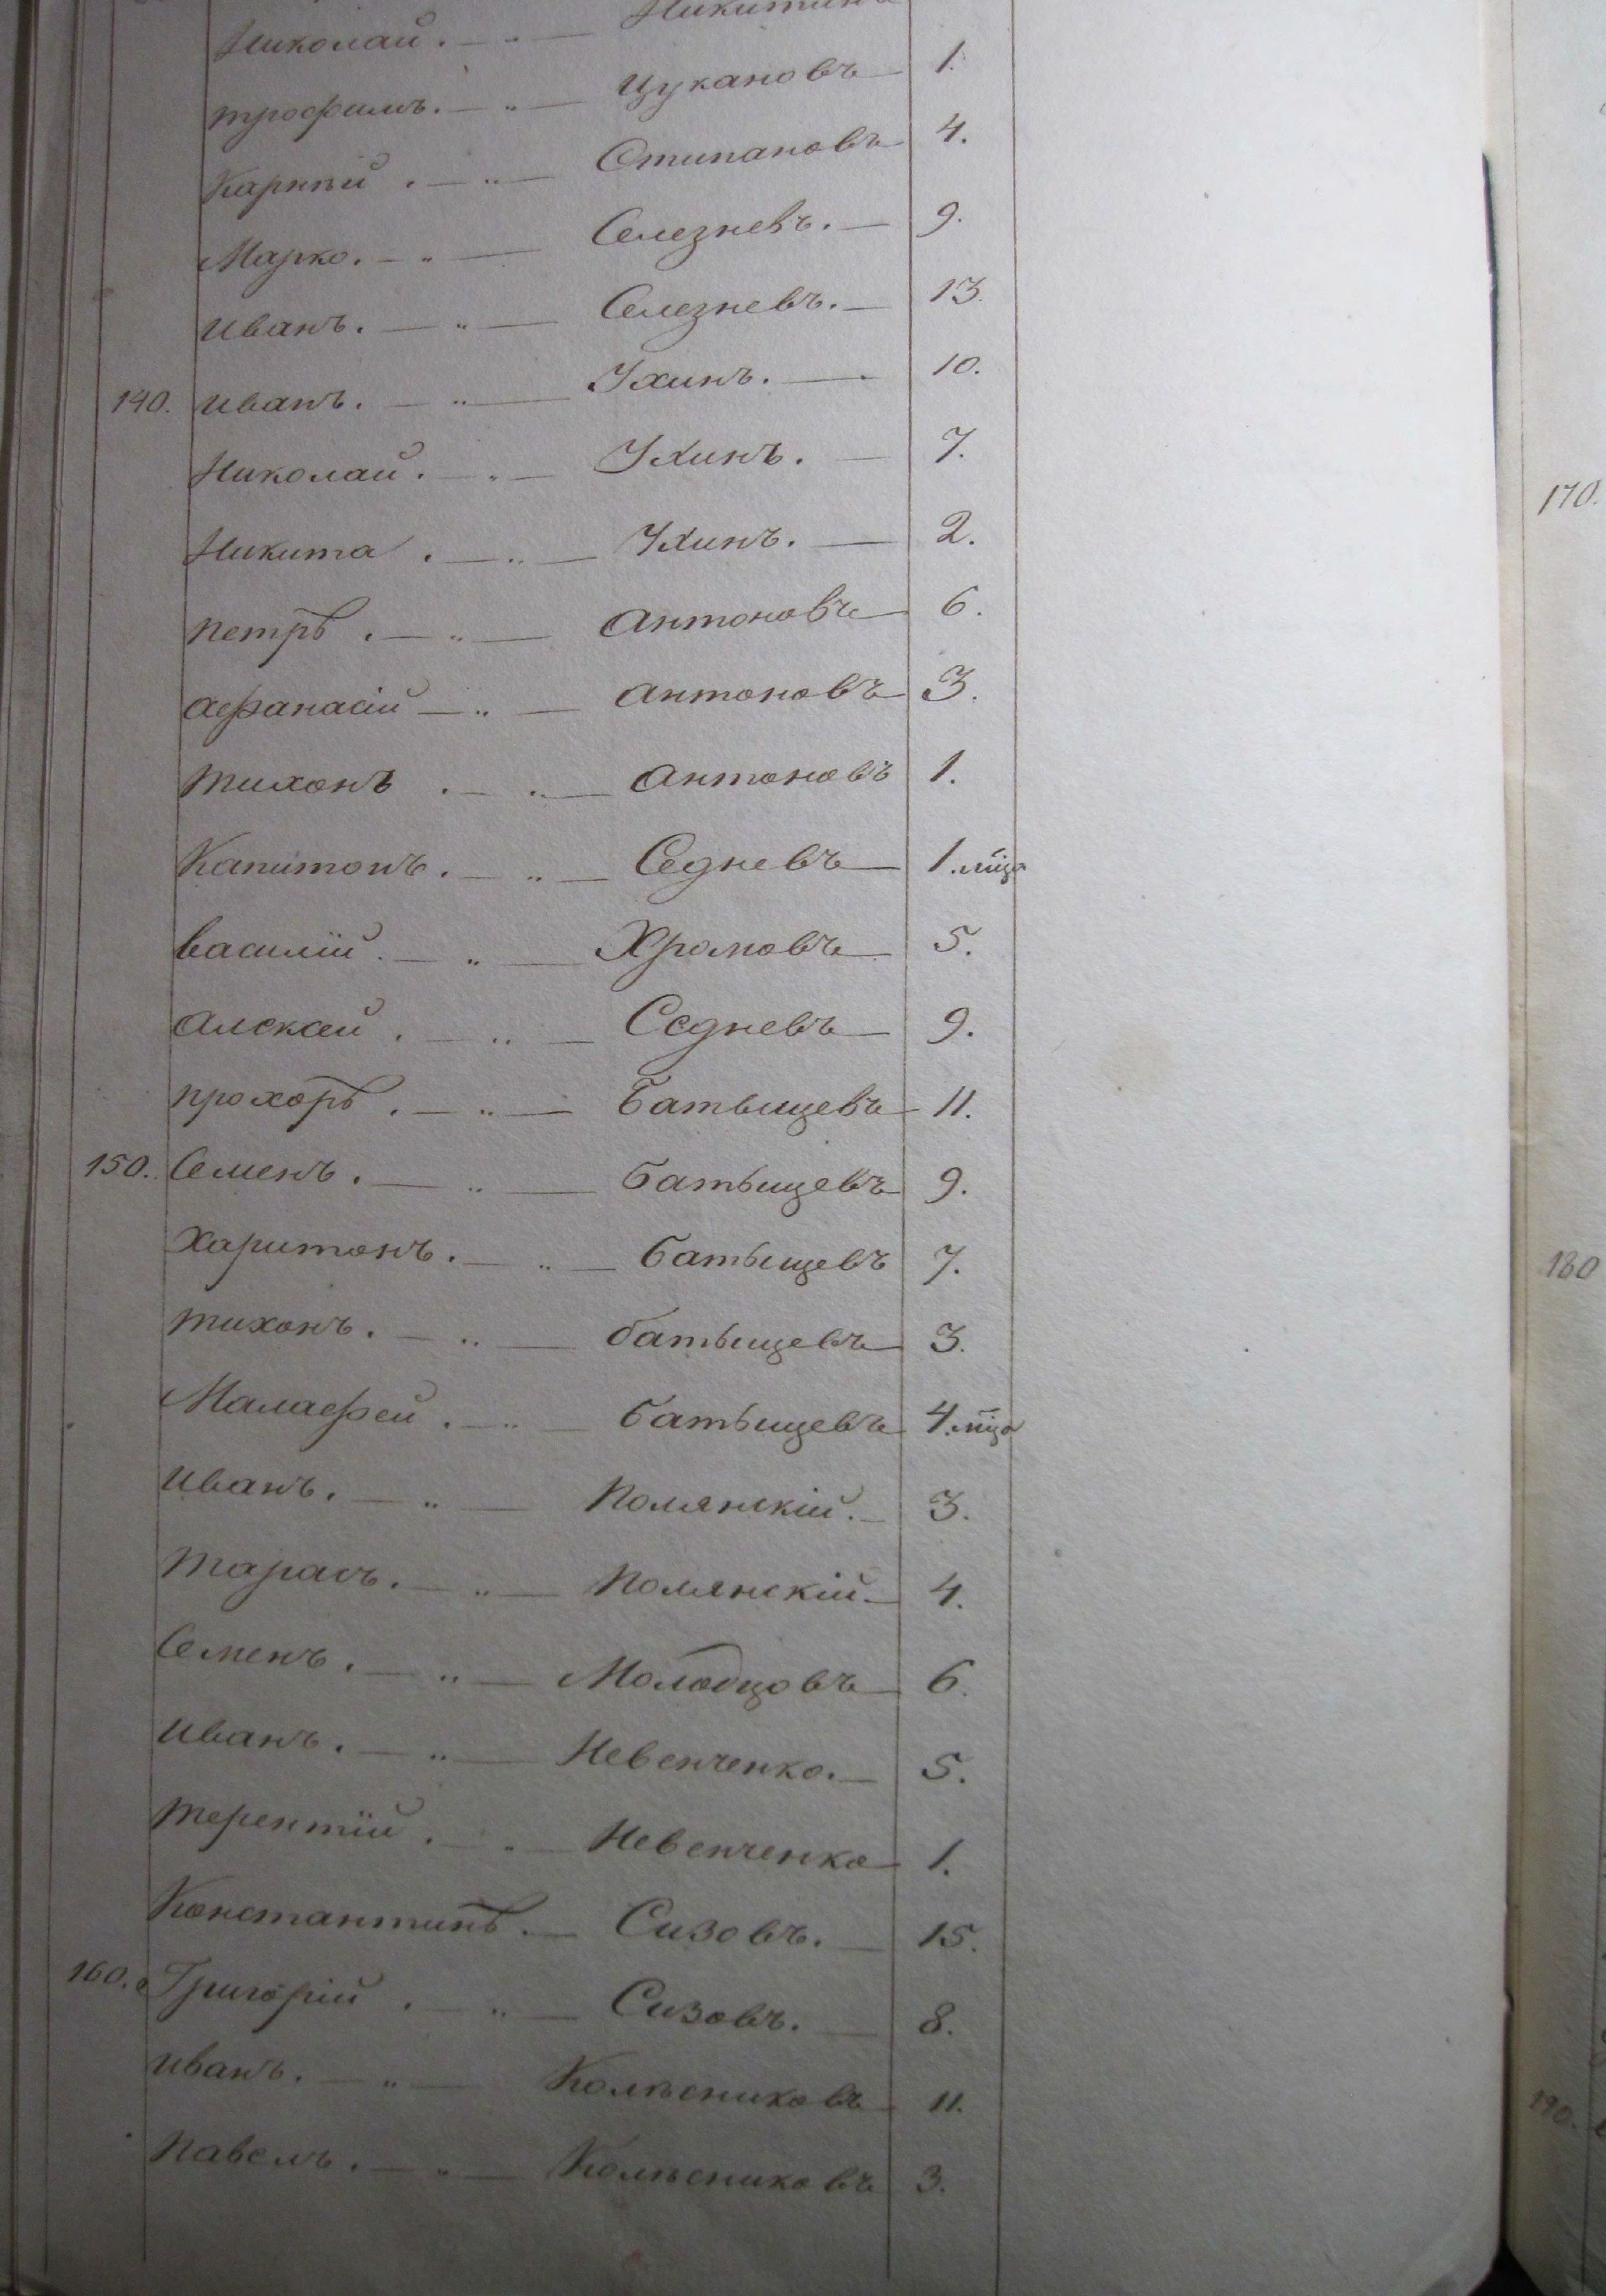 Николай. — „ — Никитинъ
трофимъ. — „ — Цукановъ — 1.
Карпѣй . — „ — Стипановъ — 4.
Марко. — „ — Селезневъ. — 9.
иванъ. — „ — Селезневъ. — 13.
140. иванъ. — „ — Ухинъ. — 10.
Николай. — „ — Ухинъ. — 7.
Никита . — „ — Ухинъ. — 2.
петръ . — „ — Антоновъ — 6.
афанасій — „ — антоновъ — 3.
тихонъ . — „ — антоновъ 1.
Капитонъ. — „ — Седневъ — 1.
василій. — „ — Хромовъ — 5.
алскай . — „ — Седневъ — 9.
прохоръ . — „ — Батьищевъ — 11.
150. Семенъ. — „ — батьищевъ 9.
Харитонъ. — „ — батьищевъ 7.
тихонъ. — „ — батьищевъ — 3.
Малафей . — „ — батьищевъ 4.
иванъ. — „ — Полянскій. — 3.
тарасъ. — „ — Полянскій — 4.
Семенъ. — „ — Молодцовъ — 6.
иванъ. — „ — Невенченко. — 5.
терентій . — „ — Невенченко — 1.
Константинъ. — Сизовъ. — 15.
160. Григорій . — „ — Сизовъ. — 8.
иванъ. — „ — Колѣсниковъ — 11.
павелъ. — „ — Колѣсниковъ 3.
170.
180
190.